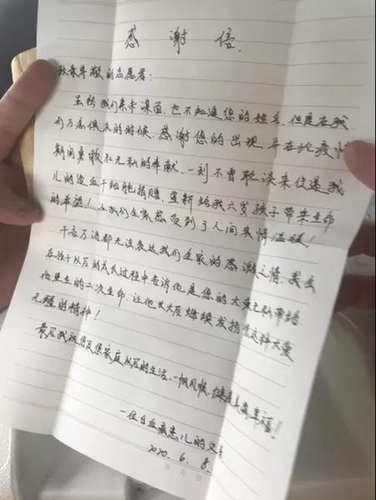 感谢信
致最尊敬的志愿者:
虽然我们素未谋面,也不知道您的姓名,但是在我
们万念俱灰的时候,感谢您的出现,并在抗疫中
期间勇敢和无私的奉献,一刻不曾耽误来促进我
儿的造血干细胞捐赠,重新给我六岁孩子带来生命
的希望!让我们全家感受到了人间真情温暖!
千言万语都无法表达我们全家的感激之情,我会
在孩子以后的成长过程中告诉他是您的大爱无私带给
他重生的二次生命,让他长大后继续发扬您这种大爱
无疆的精神!
最后我祝您及您家庭以后的生活,一帆风顺,健康美满幸福!
一位白血病患儿的父亲
2020.6.8